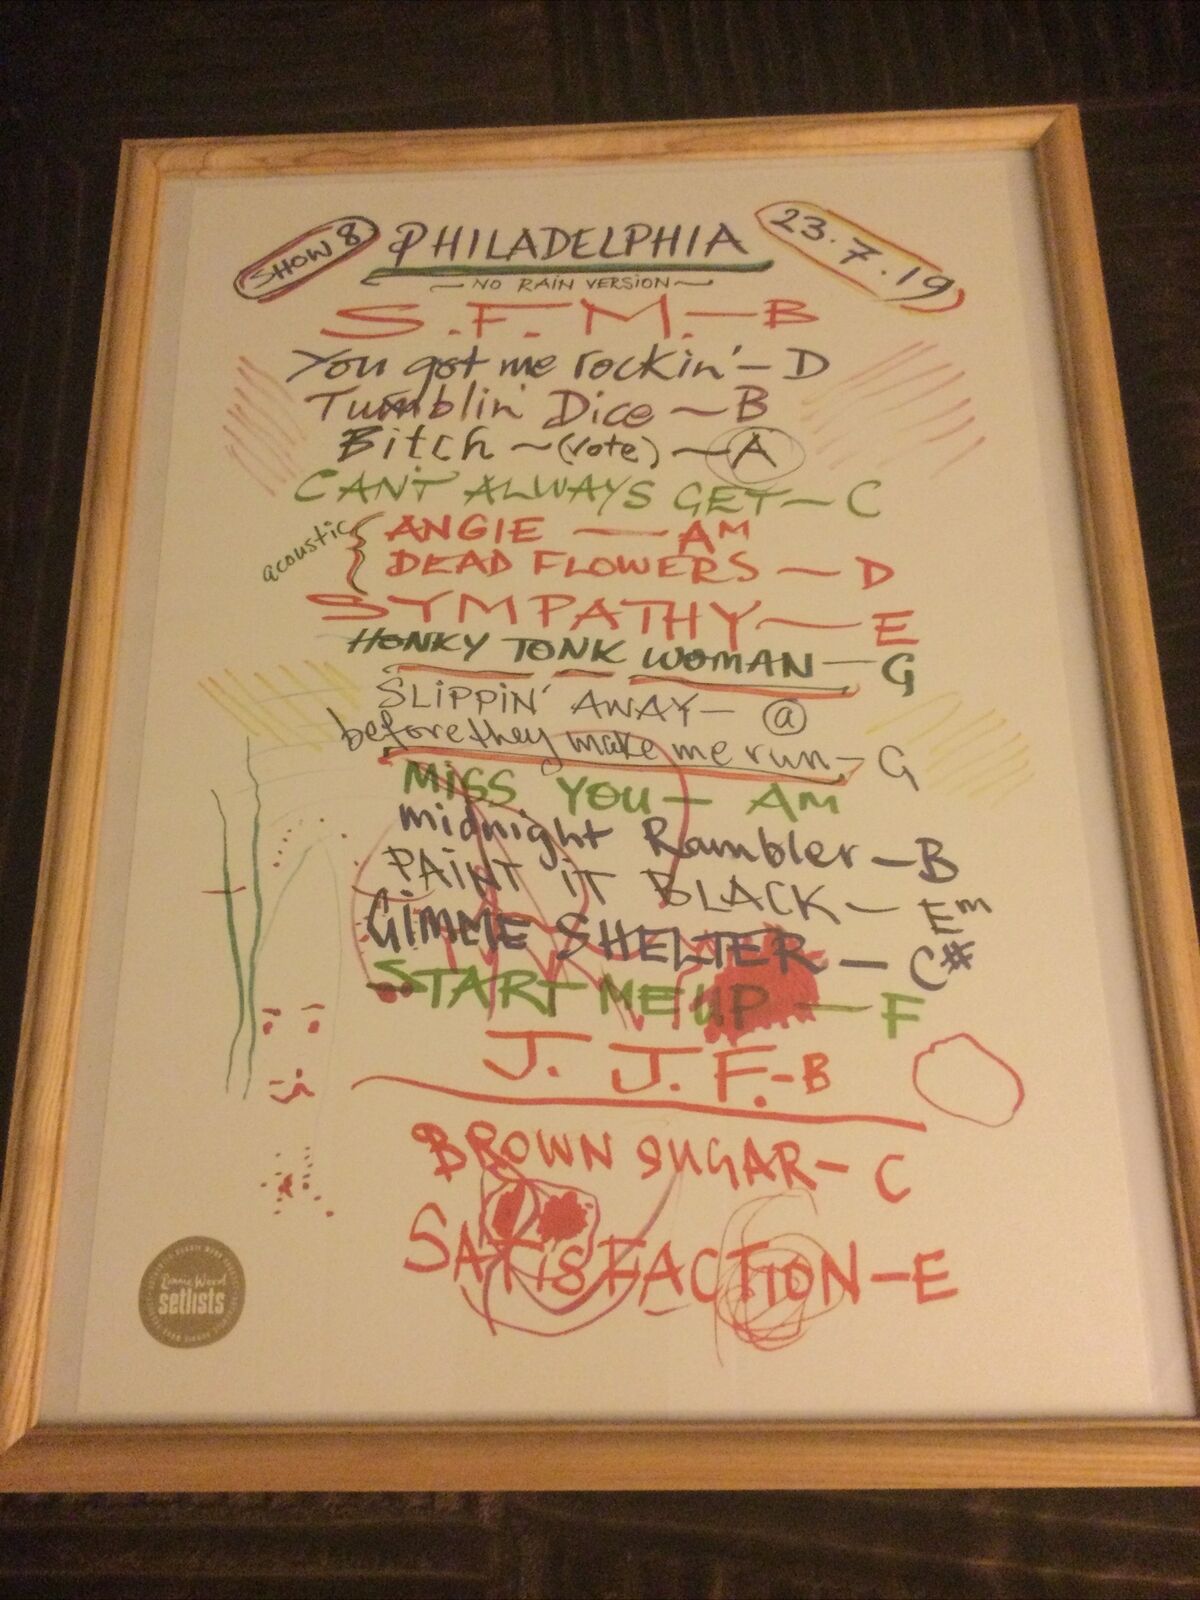 SHOW 8 PHILADELPHIA 23.7.19
~ NO RAIN VERSION ~
S.F.M. — B
You got me rockin' — D
Tumblin' Dice ~ B
Bitch ~ (vote) ~ A
CAN'T ALWAYS GET — C
acoustic { ANGIE — AM
DEAD FLOWERS — D
SYMPATHY — E
HONKY TONK WOMAN — G
SLIPPIN' AWAY — @
before they make me run — G
MISS YOU — AM
midnight Rambler — B
PAINT IT BLACK — Em
GIMME SHELTER — C#
START ME UP — F
J. J. F. - B
BROWN SUGAR — C
SATISFACTION — E
Ronnie Wood
setlists